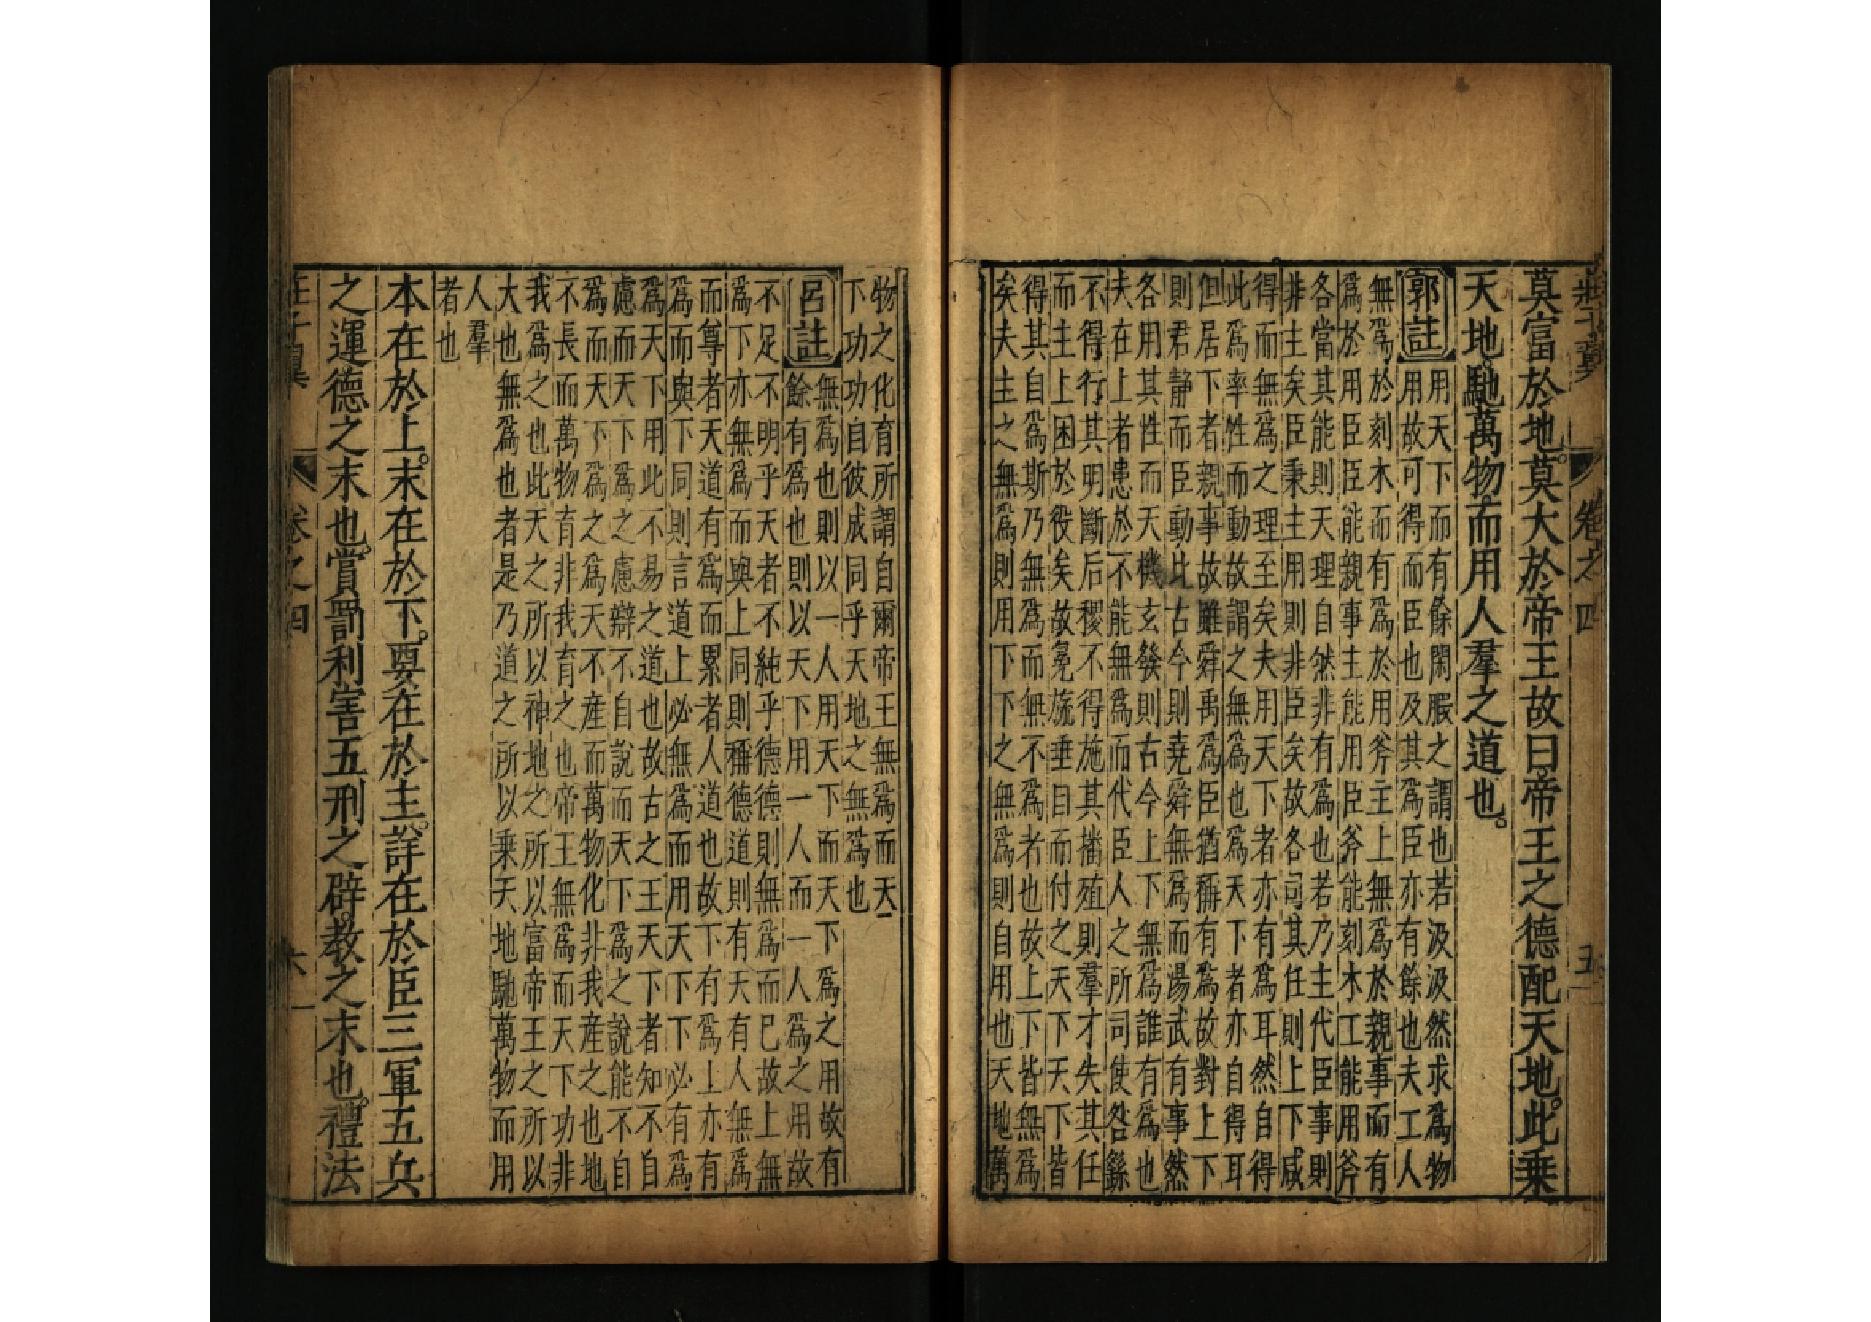 莊子翼
卷之四
五
莫富於地。莫大於帝王故曰帝王之德配天地。此乘
天地。馳萬物。而用人羣之道也。
郭註
用天下而有餘閑暇之謂也若汲汲然求爲物
用故可得而臣也及其爲臣亦有餘也夫工人
無爲於刻木而有爲於用斧主上無爲於親事而有
爲於用臣臣能親事主能用臣斧能刻木工能用斧
各當其能則天理自然非有爲也若乃主代臣事則
非主矣臣秉主用則非臣矣故各司其任則上下咸
得而無爲之理至矣夫用天下者亦有爲耳然自得
此爲率性而動故謂之無爲也爲天下者亦自得耳
但居下者親事故雖舜禹爲臣猶稱有爲故對上下
則君静而臣動此古今則堯舜無爲而湯武有事然
各用其性而天機玄發則古今上下無爲誰有爲也
夫在上者患於不能無爲而代臣人之所司使咎繇
不得行其明斷后稷不得施其播殖則羣才失其任
而主上困於役矣故冕旒垂目而付之天下天下皆
得其自爲斯乃無爲而無不爲者也故上下皆無爲
矣夫主之無爲則用下下之無爲則自用也天地萬
物之化育所謂自爾帝王無爲而天
下功功自彼成同乎天地之無爲也
呂註
無爲也則以一人用天下而天下爲之用故有
餘有爲也則以天下用一人而一人爲之用故
不足不明乎天者不純乎德德則無爲而已故上無
爲下亦無爲而與上同則稱德道則有天有人無爲
而尊者天道有爲而累者人道也故下有爲上亦有
爲而與下同則言道上必無爲而用天下下必有爲
爲天下用此不易之道也故古之王天下者知不自
慮而天下爲之慮辯不自說而天下爲之說能不自
爲而天下爲之爲天不産而萬物化非我産之也地
不長而萬物育非我育之也帝王無爲而天下功非
我爲之也此天之所以神地之所以富帝王之所以
大也無爲也者是乃道之所以乘天地馳萬物而用
人羣
者也
本在於上。末在於下。要在於主。詳在於臣三軍五兵
之運德之末也。賞罰利害五刑之辟。教之末也。禮法
莊子翼
卷之四
六